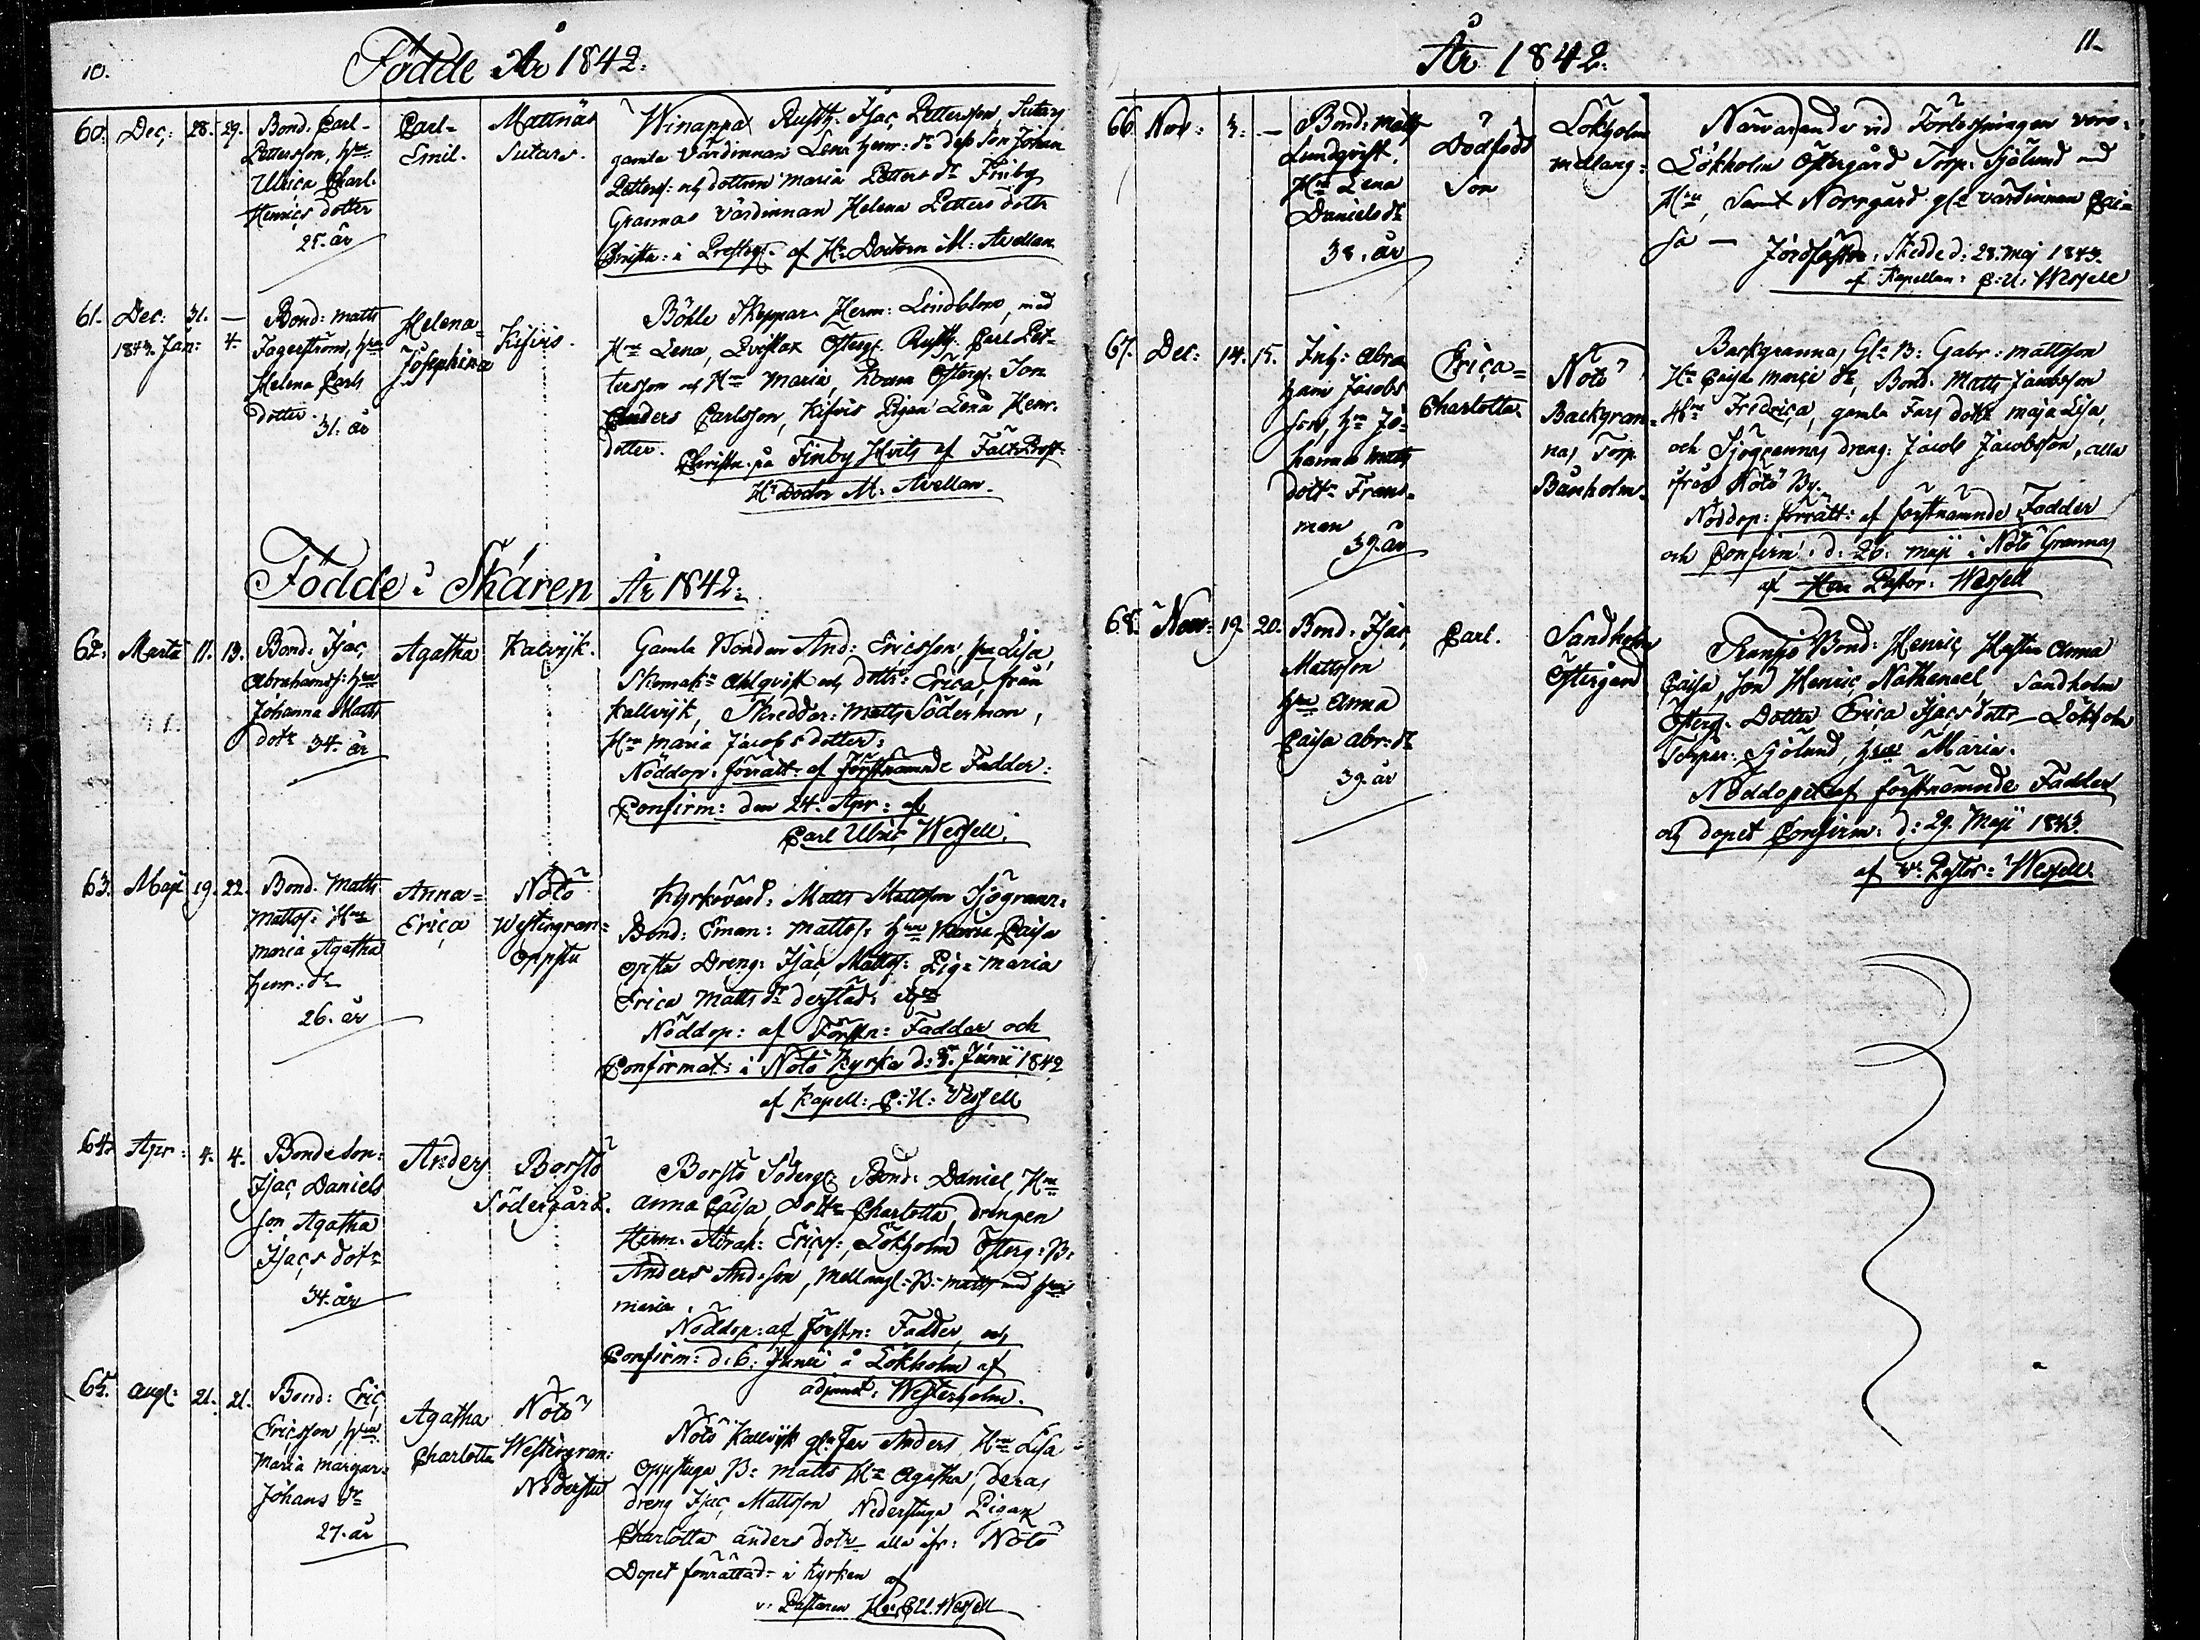 10.
Födde År 1842.
60. Dec: 28. 29. Bond. Carl
Pettersson, Hru
Ulrica Charl.
Henrics dotter
25. år
Carl-
Emil.
Mattnäs
Sutars.
Winappa Rusth. Isac Pettersson, Sutars
gamla Värdinnan Lena Henr: dr dess Son Johan
Petterss: och dottren Maria Petters dr Finby
Grannas värdinnan Helena Petters dotter
Christn: i Prestg. af Hr Doctorn M: Avellan
61. Dec: 31. —
1843. Jan: 4.
Bond: Matts
Fagerström, Hru
Helena Carls
dotter.
31. år
Helena-
Josephina
Kifvis.
Böhle Skeppar Herm: Lindblom, med
Hru Lena, Qvistar Österg. Rusth. Carl Pet-
tersson och Hru Maria, Österg. Son
Anders Carlsson, Kifvis Pigan Lena Henr.
dotter.
Christn. på Finby Hvits af Fält-Prost.
Hr Doctor M: Avellan.
Födde i Skären År 1842.
62. Martii 11. 13. Bond: Isac
Abrahamss: Hru
Johanna Matts
dotr 34. år
Agatha
Kalvijk.
Gamla Bonden And: Ericsson, Hru Lisa,
Skomakr Ahlqvist och dottr: Erica, från
Kallvijk, Skreddar: Matts Söderman,
Hru Maria Jacobsdotter:
Nöddop: förrätt: af förstnämnde Fadder:
Confirm: den 24. Apr: af
Carl Ulric Wessell.
63. Maji 19. 22. Bond. Matts
Mattss: Hru
Maria Agatha
Henr: dr
26. år
Anna-
Erica
Nötö
Westergran-
Oppstu
Kyrkovärd: Matts Mattsson Sjögrann:
Bond: Eman: Mattss: Hru Maria Caisa
Opstu Dreng: Isac Mattss: Pig: Maria
Erica Matts dr derstäd:
Nöddop: af Förstn: Fadder och
Confirmat: i Nötö Kyrka d: 5. Junii 1842
af Kapell: C: U: Wessell
64. Apr: 4. 4. Bondeson:
Isac Daniels
son Agatha
Isacs dotr
34. år
Anders
Borstö
Södergård.
Borstö Söderg: Bond: Daniel, Hru
Anna Caisa, Dottr Charlotta, drengen
Herm. Abrah: Ericss:, Lökholm Österg: B:
Anders Andsson, Mellang: B: Matts med Hru
Maria.
Nöddop: af förstn: Fadder, och
Confirm: d. 6. Junii å Lökholm af
adjunct: Westerholm.
65. Aug: 21. 21. Bond: Eric
Ericsson, Hru
Maria Margar:
Johans dr
27. år
Agatha
Charlotta
Nötö
Westergran:
Nederstu
Nötö Kallvijk gl: Far Anders, Hru Lisa
Oppstuga B: Matts Hu Agatha, deras
dreng Isac Mattsson Nederstuga Pigan
Charlotta Anders dotr alla ifr: Nötö
Dopet förrättad: i Kyrkan
af
v. Pastoren Herr C. U. Wessell
År 1842.
11.
66. Nov: 3. — Bond: Matts
Lundqvist,
Hru Lena
Daniels dr
38. år
Dödfödd
Son
Lökholm
mellang:
Närvarande vid Förlossningen voro:
Lökholm Östergård Torp: Sjölund med
Hru, Samt Norrgård gla värdinnan Cai-
sa — Jordfästn: skedde d: 28. Maj 1843.
af Kapellan: C: U: Wessell
67. Dec: 14. 15. Inh: Abra
ham Jacobs
son, Hu Jo-
hanna Matts
dottr Frans-
man
39. år
Erica-
Charlotta
Nötö
Backgran-
nas Torp
Bånholm.
Backgrannas Gla B: Gabr: Mattsson
Hu Caisa Marie dr, Bond. Matts Jacobsson
Hru Fridrica, gamla Fars dottr Maja Lisa,
och Sjögrannas dreng: Jacob Jacobsson, alla
ifrån Nötö By.
Nöddop: förrätt: af förstnämnde Fadder
och Confirm: d: 26. Maji i Nötö Grannas
af Herr Pastor: Wessell
68. Nov: 19. 20. Bond: Isac
Mattsson
Hru Anna
Caisa Abr: dr
39. år
Carl.
Sandholm
Östergård
Bond: Henric Hustru Anna
Caisa, Son Henric Nathanael, Sandholm
Österg. Dotter Erica Isacs dottr Lökholm
Torpar: Sjölund, Hru Maria.
Nöddopet af förstnämnde Fadder
och dopet Confirm: d: 29. Maji 1843.
af v. Pastor: Wessell.